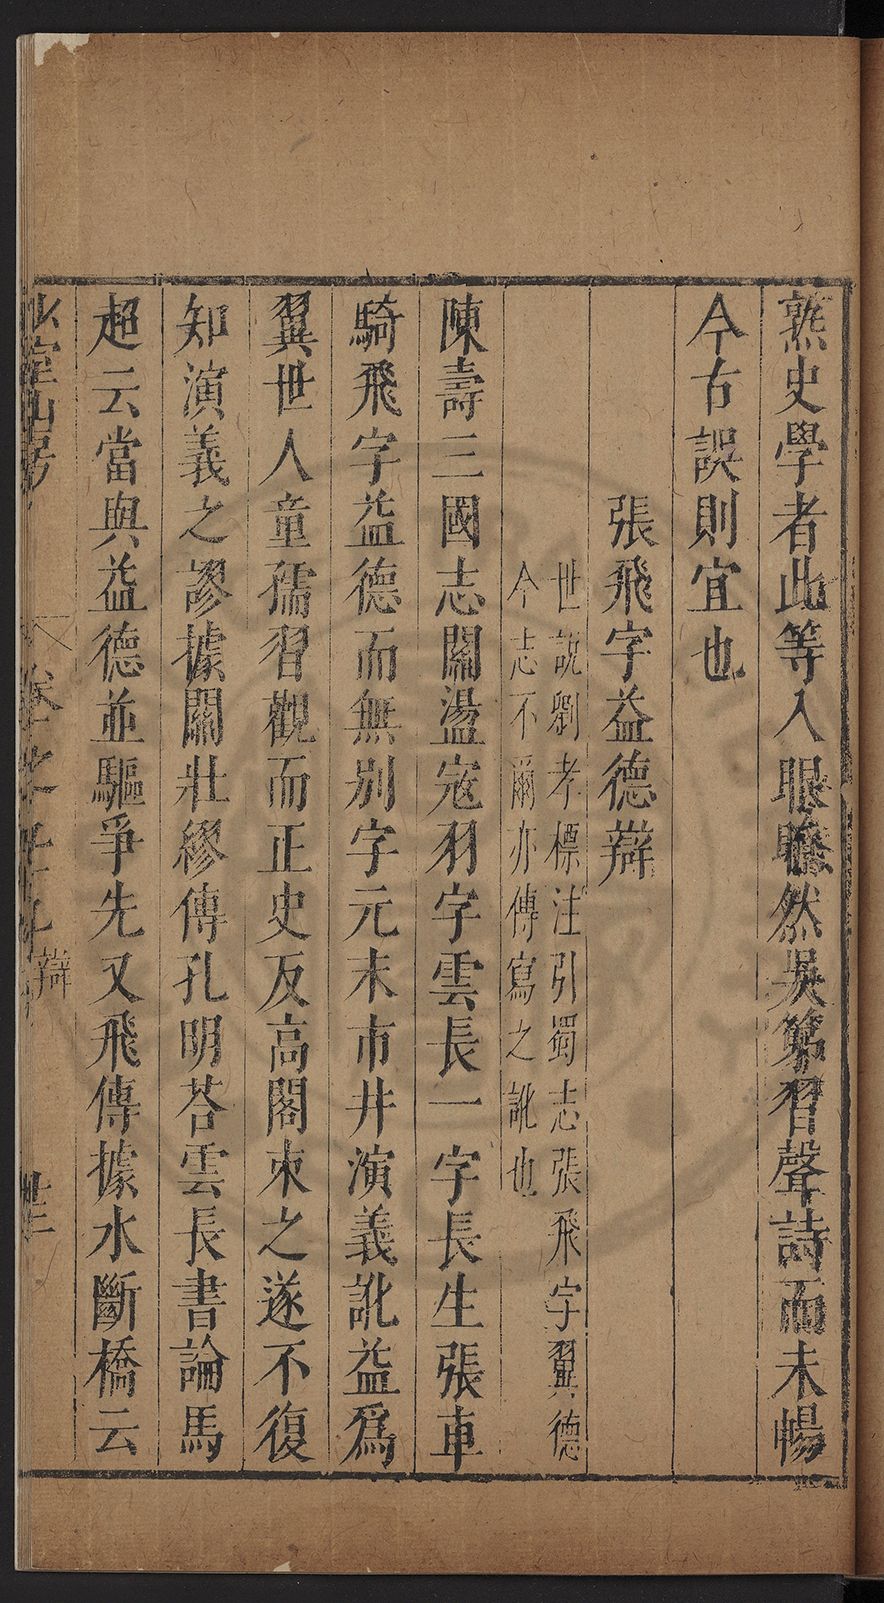 熟史學者此等入眼瞭然吳第習聲詩而未暢
今古誤則宜也
張飛字益德辯
世說劉孝標注引蜀志張飛字翼德
今志不爾亦傳寫之訛也
陳壽三國志關盪寇羽字雲長一字長生張車
騎飛字益德而無別字元末市井演義訛益爲
翼世人童孺習觀而正史反高閣束之遂不復
知演義之謬據關壯繆傳孔明荅雲長書論馬
超云當與益德並驅爭先又飛傳據水斷橋云
少室山房
卷之
辯